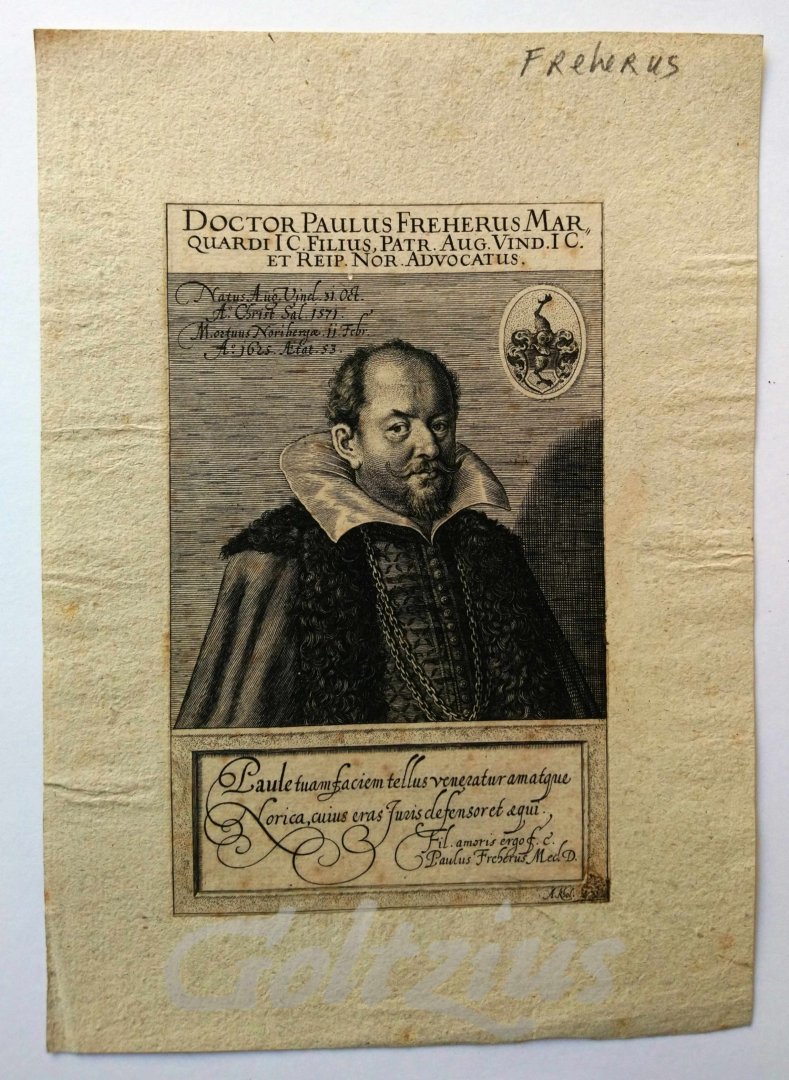 Freherus
DOCTOR PAULUS FREHERUS MAR,,
QUARDI I C. FILIUS, PATR. AUG. VIND. I C.
ET REIP. NOR. ADVOCATUS.
Natus Aug. Vind. 31 Oct.
A° Christ Sal. 1571.
Mortuus Noribergæ 11 Febr.
A°: 1625. Ætat. 53.
Paule tuam faciem tellus veneratur amatque
Norica, cuius eras Juris defensor et æqui.
Fil. amoris ergo f. c.
Paulus Freherus Med. D.
Goltzius